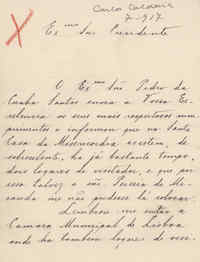 Carlos Caldeira
7-917
Exmo Snr Presidente
O Exmo Snr Pedro da
Cunha Santos envia a Vossa Ex
celencia os seus mais respeitosos cum
primentos e informa que na Santa
Casa da Misericordia existem, de
ha já bastante tempo,
dois logares de visitador, e que por
essa talvez o snr. Pereira de
não pudesse lá colocar.
Lembrou me então a
Camara Municipal de Lisboa
onde ha tambem logares de